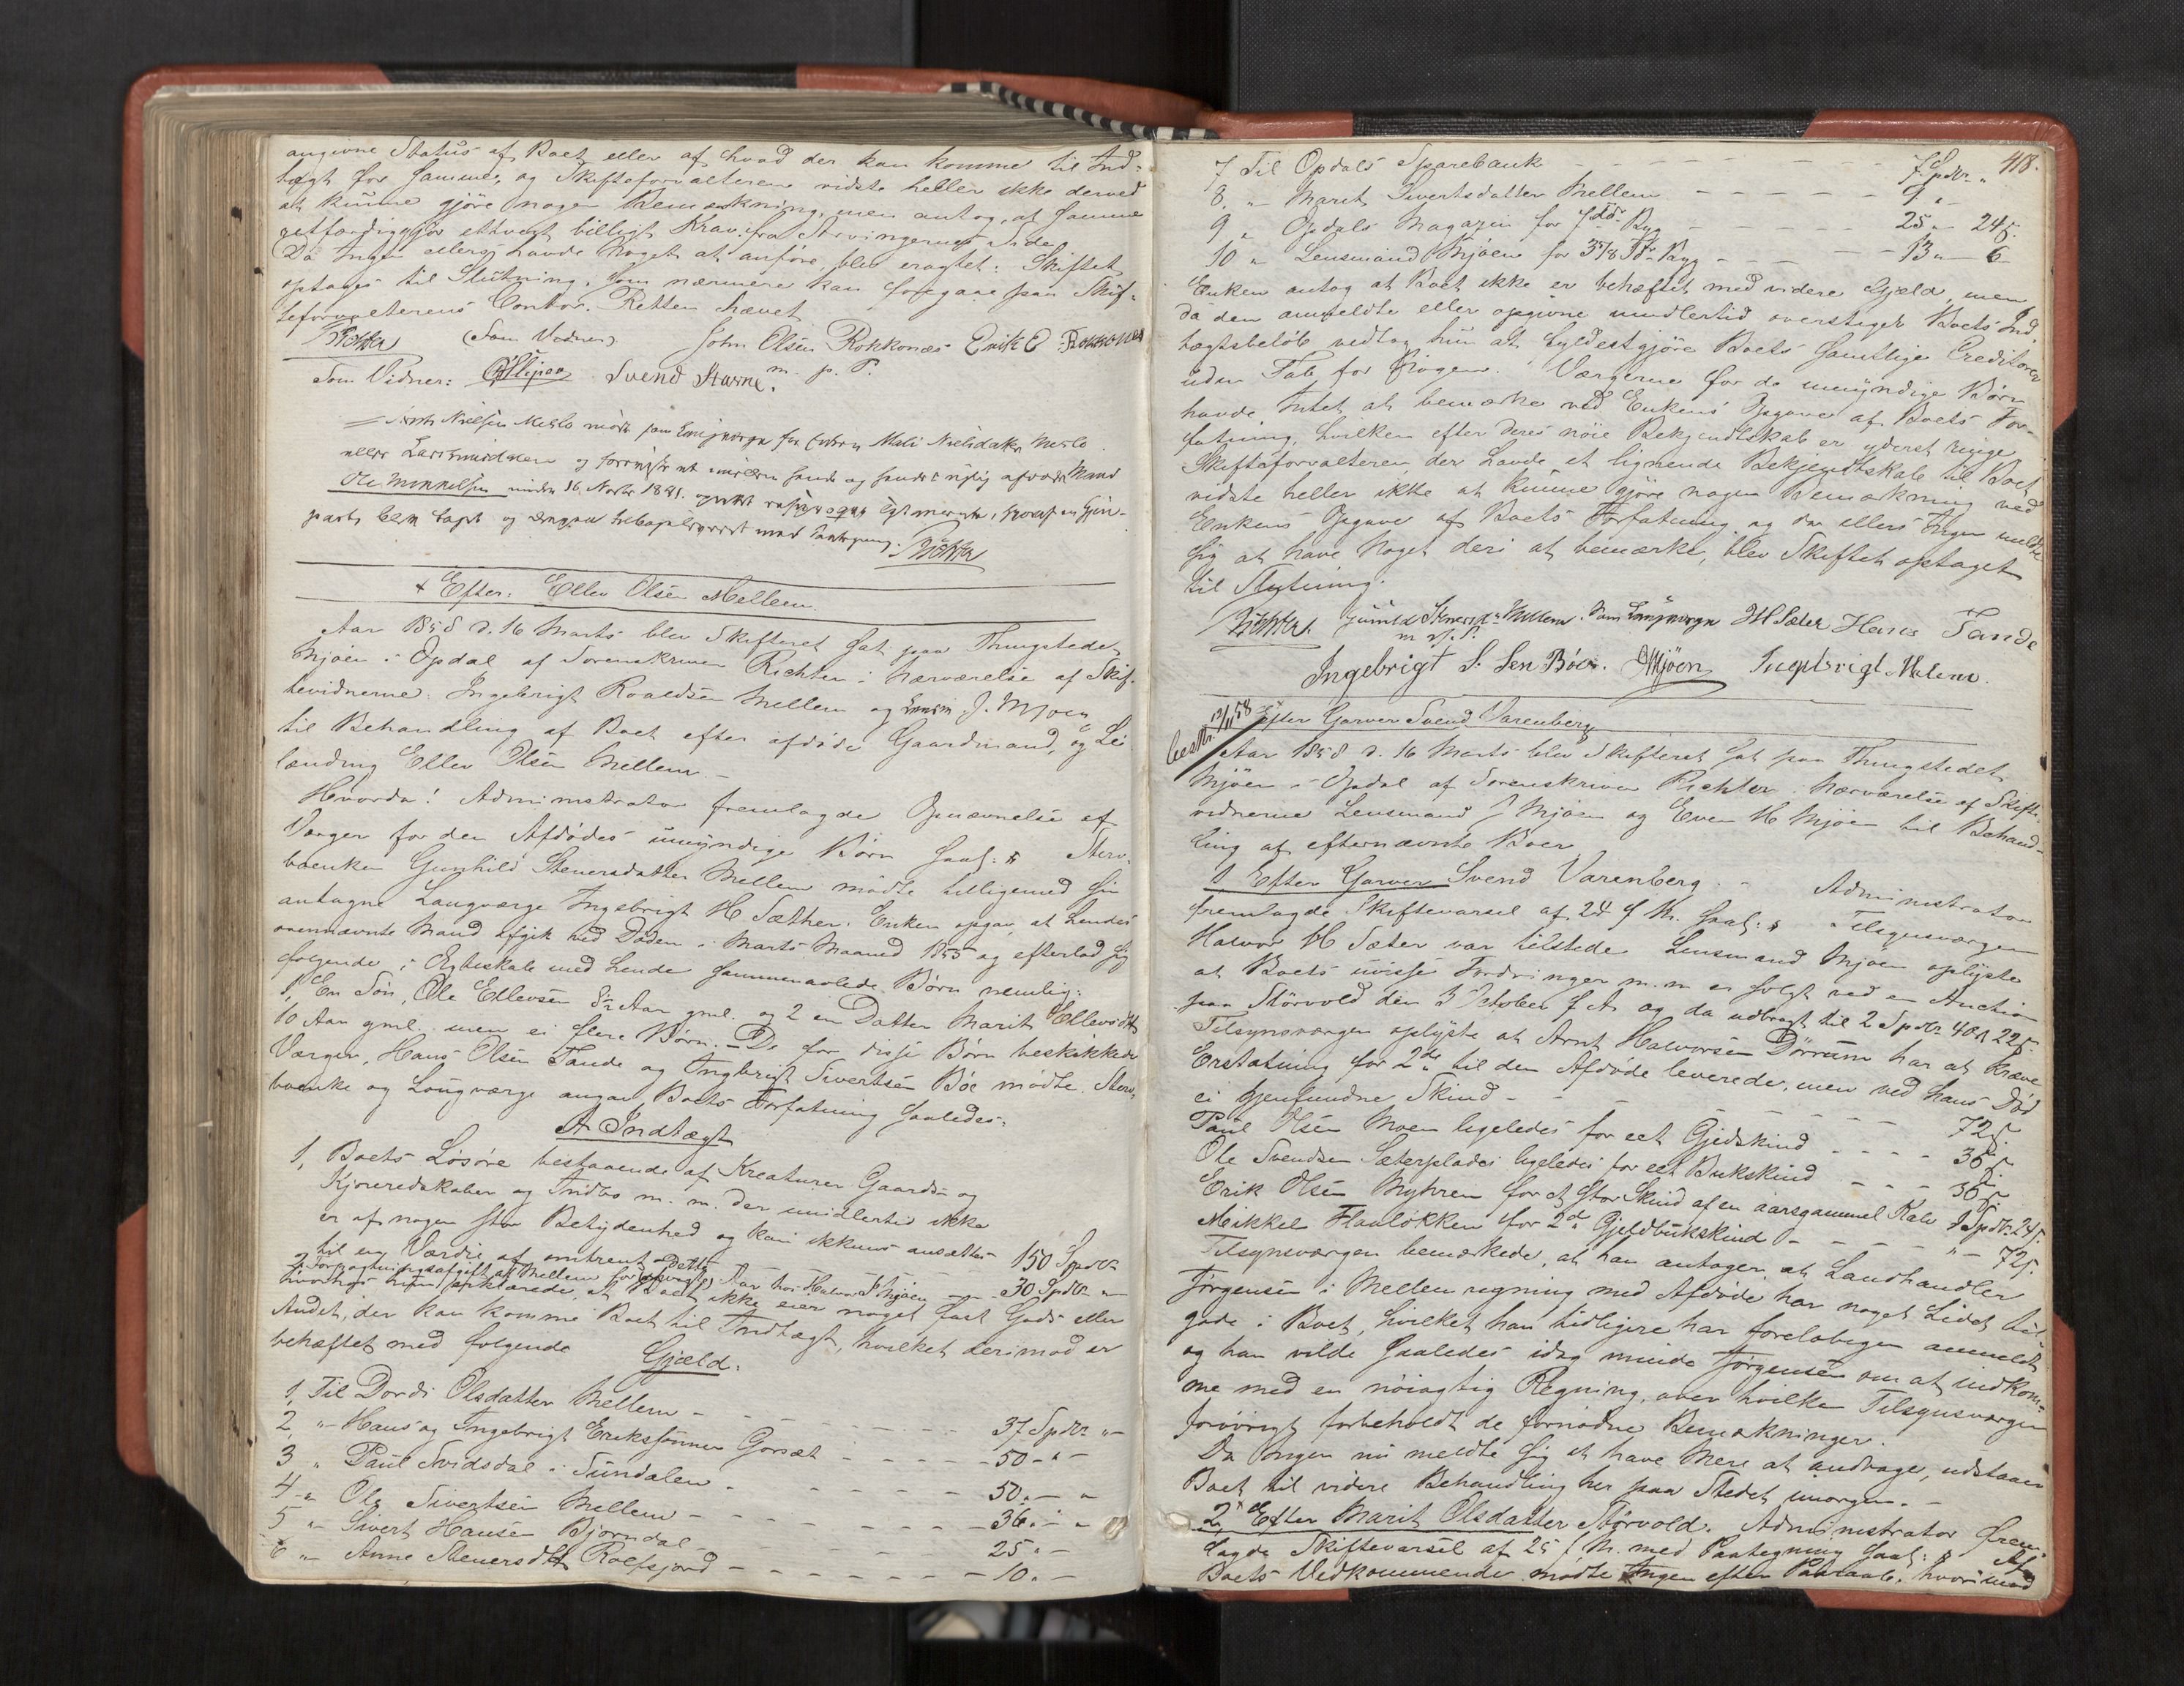 angivne Status af Boet eller af hvad der kan komme til Ind-
tægt for samme, og Skifteforvalteren vidste heller ikke derved
at kunne gjöre nogen Bemærkning, men antog, at samme
retfærdiggjör ethvert billigt Krav fra Arvingernes Side
Da Ingen ellers havde Noget at anföre, blev eragtet: Skiftet
optages til Slutning, som nærmere kan foregaae paa Skif-
teforvalterens Contor. Retten hævet
Richter (Som Vidner) John Olsen Rokkonæs Erik E Rokkones
Som Vidner: Svend Stavne m. p. P.
Niels Nielsen Meslo mödte som Laugværge for Enken Mali Nielsdatter Meslo
og
Ole Mikkelsen 16 Novbr 1851.
Richter
+ Efter: Ellev Olsen Mellem.
Aar 1858 d. 16 Marts blev Skifteret sat paa Thingstedet
Mjöen i Opdal af Sorenskriver Richter i Nærværelse af Skif-
tevidnerne Ingebrigt Roaldsen Mellem og Lensm J. Mjoen
til Behandling af Boet efter afdöde Gaardmand, og Lei
lænding Ellev Olsen Mellem. –
Hvorda! Administrator fremlagde Opnævnelse af
Værger for den Afdödes umyndige Börn saal: Sterv-
boenken Gunhild Steneresdatter Mellem mödte tilligemed sin
antagne Laugværge Ingebrigt H Sæther. Enken opgav, at hendes
ovennævnte Mand afgik ved Döden i Marts Maaned 1855 og efterlod sig
folgende i Ægteskab med hende sammenavlede Börn nemlig:
1, En Sön, Ole Ellevsen 8½ Aar gml. og 2 en Datter Marit Ellevsdtr
10 Aar gml. men ei flere Börn. – De for disse Börn beskikkede
Værger, Hans Olsen Tande og Ingbrigt Sivertsen Böe mödte. Sterv-
boenke og Laugværge angav, Boets Forfatning saaledes:
A Indtægt
1, Boets Lösöre bestaaende af Kreaturer Gaards- og
Kjöreredskaber og Indbo m. m. der imidlertid ikke
er af nogen stor Betydenhed og kan ikkuns ansættes
til en Værdie af omtrent 150 Spdlr
og Forpagtningsafgift af Mellem for Aar hos Halvor Mjöen – 30 Spdlr „
hvorhos hun forklarede, at Boet ikke eier noget fast Gods eller
Andet, der kan komme Boet til Indtægt, hvilket derimod er
behæftet med følgende Gjæld.
1, Til Dordi Olsdatter Mellem – 37 Spdlr „ –
2, „ – Hans og Ingebrigt Erikssönner Gorsæt – 50 – „ –
3 „ Paul Svidsdal i Sundalen – 50. – „
4 – „ Ole Sivertsen Mellem – 36. – „
5 „ Sivert Hansen Björndal 25 „ –
6 „ – Anne Stenersdtr Rolfsjord – 10. –
418.
7 Til Opdals Sparebank – 7 Spdlr „
8, „ – Marit Sivertsdatter Mellem – 9 „
9 „ Opdals Magazin for 7 Tdr Byg – 25 „ – 24 ß.
10 „ Lensmand Mjöen for 3 5/8 Tdr Byg – 13 „ – 6
Enken antog at Boet ikke er behæftet med videre Gjæld, men
da den anmeldte eller opgivne imidlertid overstiger Boets Ind-
tægtsbelöb vedtog hun at fyldestgjöre Boets samtlige Creditorer
uden Tab for Nogen. Værgerne for de umyndige Börn
havde Intet at bemærke ved Enkens Opgave af Boets For-
fatning, hvilken efter deres nöie Bekjendtskab er yderst ringe
Skifteforvalteren, der havde et lignende Bekjendtskab til Boet
vidste heller ikke at kunne gjöre nogen Bemærkning ved
Enkens Opgave af Boets Forfatning og da ellers Ingen meldte
sig at have Noget deri at bemærke, blev Skiftet optaget
til Slutning.
Richter. Gunild Stenersd: Mellem. Som Laugværge IH Sæter Hans Tande
m. p. P.
Ingebrigt S. Sen Böe. JMjöen Ingebrigt Melem.
besltt. 12/11 58 Efter Garver Svend Varenberg
Aar 1858 d. 16 Marts blev Skifteret sat paa Thingstedet
Mjöen i Opdal af Sorenskriver Richter i Nærværelse af Skifte-
vidnerne Lensmand J Mjöen og Even H Mjöen til Behand-
ling af efternævnte Boer
1 Efter Garver Svend Varenberg. – Administrator
fremlagde Skiftevarsel af 24 f M. saal: Tilsynsværgen
Halvor H Sæter var tilstede Lensmand Mjöen oplyste
at Boets uvisse Fordringer m. m er solgt ved en Auction
paa Störvold den 3 October f A. og da udbragt til 2 Spdlr 4 ort 22 ß.
Tilsynsværgen oplyste at Arnt Halvorsen Dörrum har at kræve
Erstatning for 2de til den Afdöde leverede, men ved hans Död
ei gjenfundne Skind – 72 ß.
Paul Olsen Moen ligeledes for eet Gjedskind – 36 ß.
Ole Svendsen Sæterplades ligeledes for eet Bukskind – 36 ß
Erik Olsen Myhren for et stor Skind af en aarsgammel Kalv 1 Spdlr. 24 ß.
Mikkel Flaalökken for 2de Gjeldbukskind – „ – 72 ß.
Tilsynsværgen bemærkede, at han antager, at Landhandler
Jörgensen i Mellemregning med Afdöde har noget Lidet til-
gode i Boet, hvilket han tidligere har forelöbigen anmeldt
og han vilde saaledes idag minde Jörgensen om at indkom-
me med en nöiagtig Regning, over hvilken Tilsynsværgen
forövrigt forbeholdt de fornödne Bemærkninger.
Da Ingen nu meldte sig at have Mere at andrage, udstaaer
Boet til videre Behandling her paa Stedet imorgen. –
2, Efter Marit Olsdatter Störvold. Administrator frem-
lagde Skiftevarsel af 25 f M. med Paategning saal: Af
Boets Vedkommende mödte Ingen efter Paaraab, hvorimod